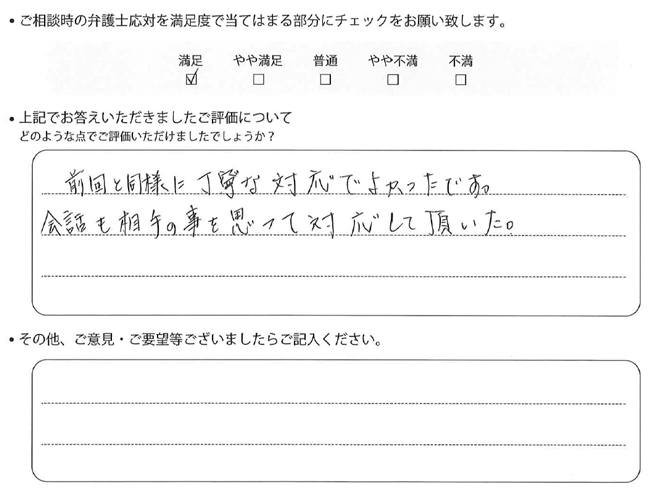 • ご相談時の弁護士応対を満足度で当てはまる部分にチェックをお願い致します。
満足 やや満足 普通 やや不満 不満
☑ ☐ ☐ ☐ ☐
• 上記でお答えいただきましたご評価について
どのような点でご評価いただけましたでしょうか？
前回と同様に丁寧な対応でよかったです。
会話も相手の事を思って対応して頂いた。
• その他、ご意見・ご要望等ございましたらご記入ください。